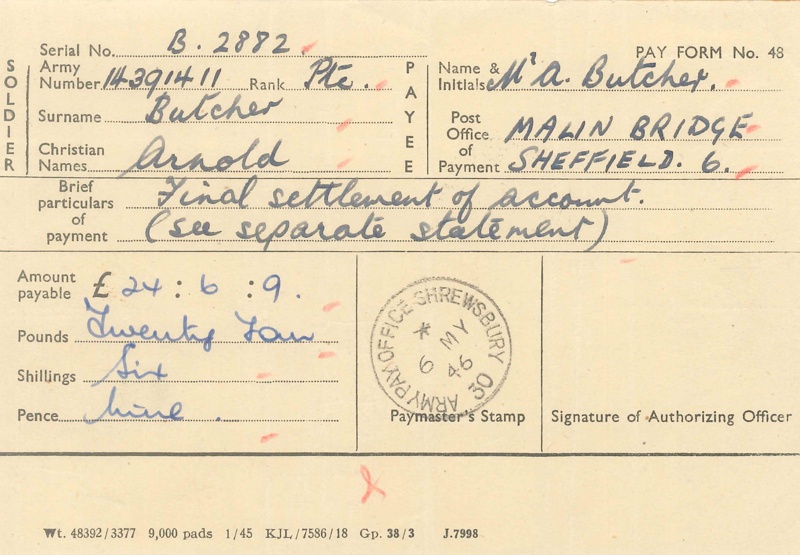 PAY FORM No. 48
SOLDIER
Serial No. B. 2882
Army Number 14391411 Rank Pte.
Surname Butcher
Christian Names Arnold
PAYEE
Name & Initials Mr A. Butcher.
Post Office of Payment MALIN BRIDGE
SHEFFIELD. 6.
Brief particulars of payment Final settlement of account.
(see separate statement)
Amount payable £ 24 : 6 : 9.
Pounds Twenty Four
Shillings Six
Pence Nine.
ARMY PAY OFFICE SHREWSBURY 30
* 6 MY 46
Paymaster's Stamp
Signature of Authorizing Officer
Wt. 48392/3377 9,000 pads 1/45 KJL/7586/18 Gp. 38/3 J.7998